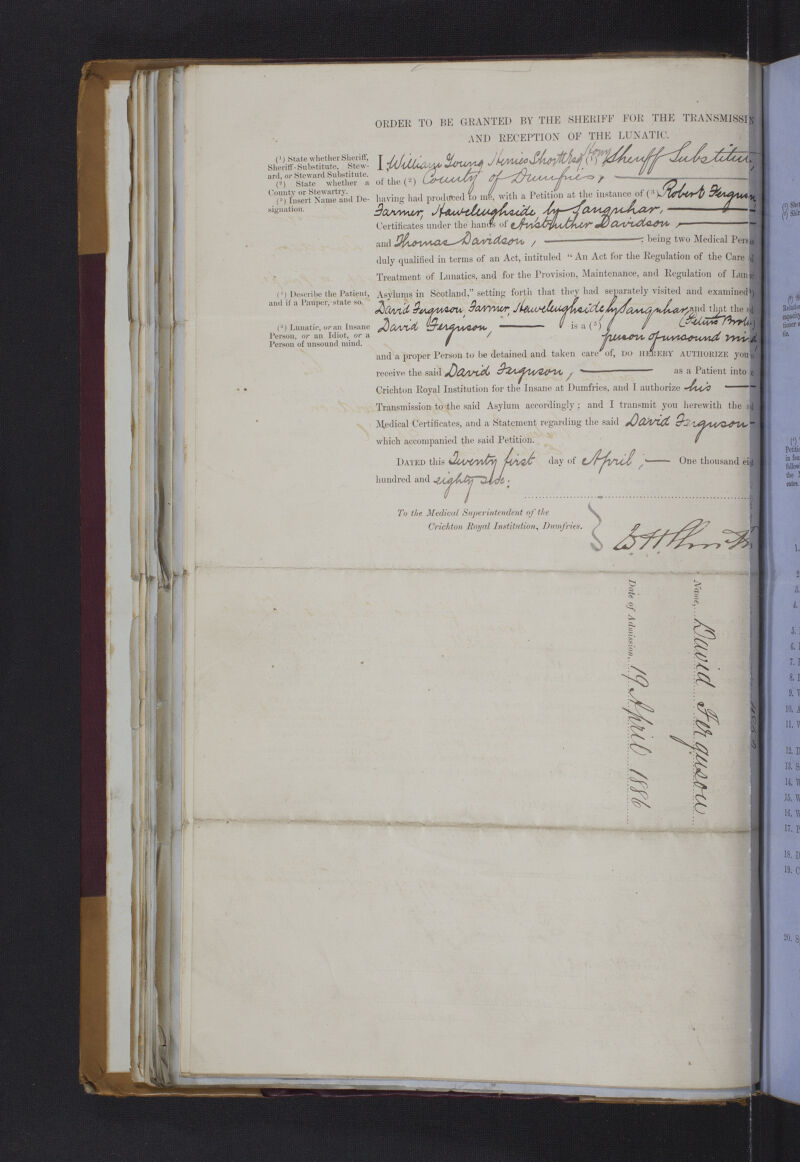 ORDER TO BE GRANTED BY THE SHERIFF FOR THE TRANSMISSI
AND RECEPTION OF THE LUNATIC.
(1) State whether Sheriff,
Sheriff-Substitute, Stew-
ard, or Steward Substitute.
(2) State whether a
County or Stewartry.
(3) Insert Name and De-
signation.
I, William Young Shortt Esq Sheriff Substitute,
of the (2) County of Dumfries,
having had produced to me, with a Petition at the instance of (3) Robert Ferguson
Farmer, by Sanquhar,
Certificates under the hands of Anstruther Davidson,
and Thomas Davidson, ; being two Medical Pers
duly qualified in terms of an Act, intituled "An Act for the Regulation of the Care
Treatment of Lunatics, and for the Provision, Maintenance, and Regulation of Lun
(4) Describe the Patient,
and if a Pauper, state so.
Asylums in Scotland," setting forth that they had separately visited and examined
David Ferguson, Farmer, by Sanquhar, and that the
(5) Lunatic, or an Insane
Person, or an Idiot, or a
Person of unsound mind.
David Ferguson, is a (5)
person of unsound mind
and a proper Person to be detained and taken care of, DO HEREBY AUTHORIZE you
receive the said David Ferguson, as a Patient into
Crichton Royal Institution for the Insane at Dumfries, and I authorize his
Transmission to the said Asylum accordingly; and I transmit you herewith the
Medical Certificates, and a Statement regarding the said David Ferguson
which accompanied the said Petition.
DATED this Twenty first day of April, One thousand eig
hundred and eighty six.
To the Medical Superintendent of the
Crichton Royal Institution, Dumfries.
Name, David Ferguson
Date of Admission, 19 April 1886